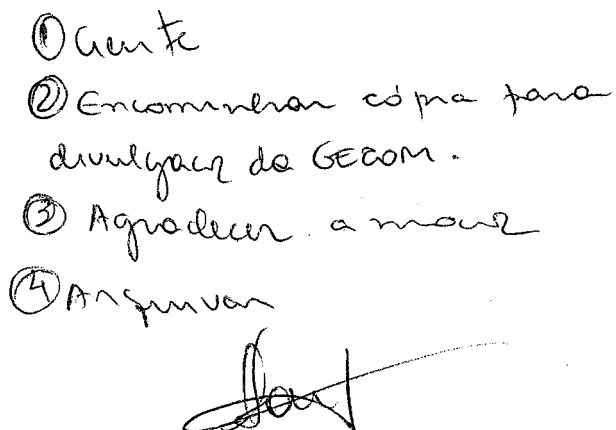 ① Ciente
② Encaminhar cópia para
divulgação da GECOM.
③ Agradecer a moção
④ Arquivar